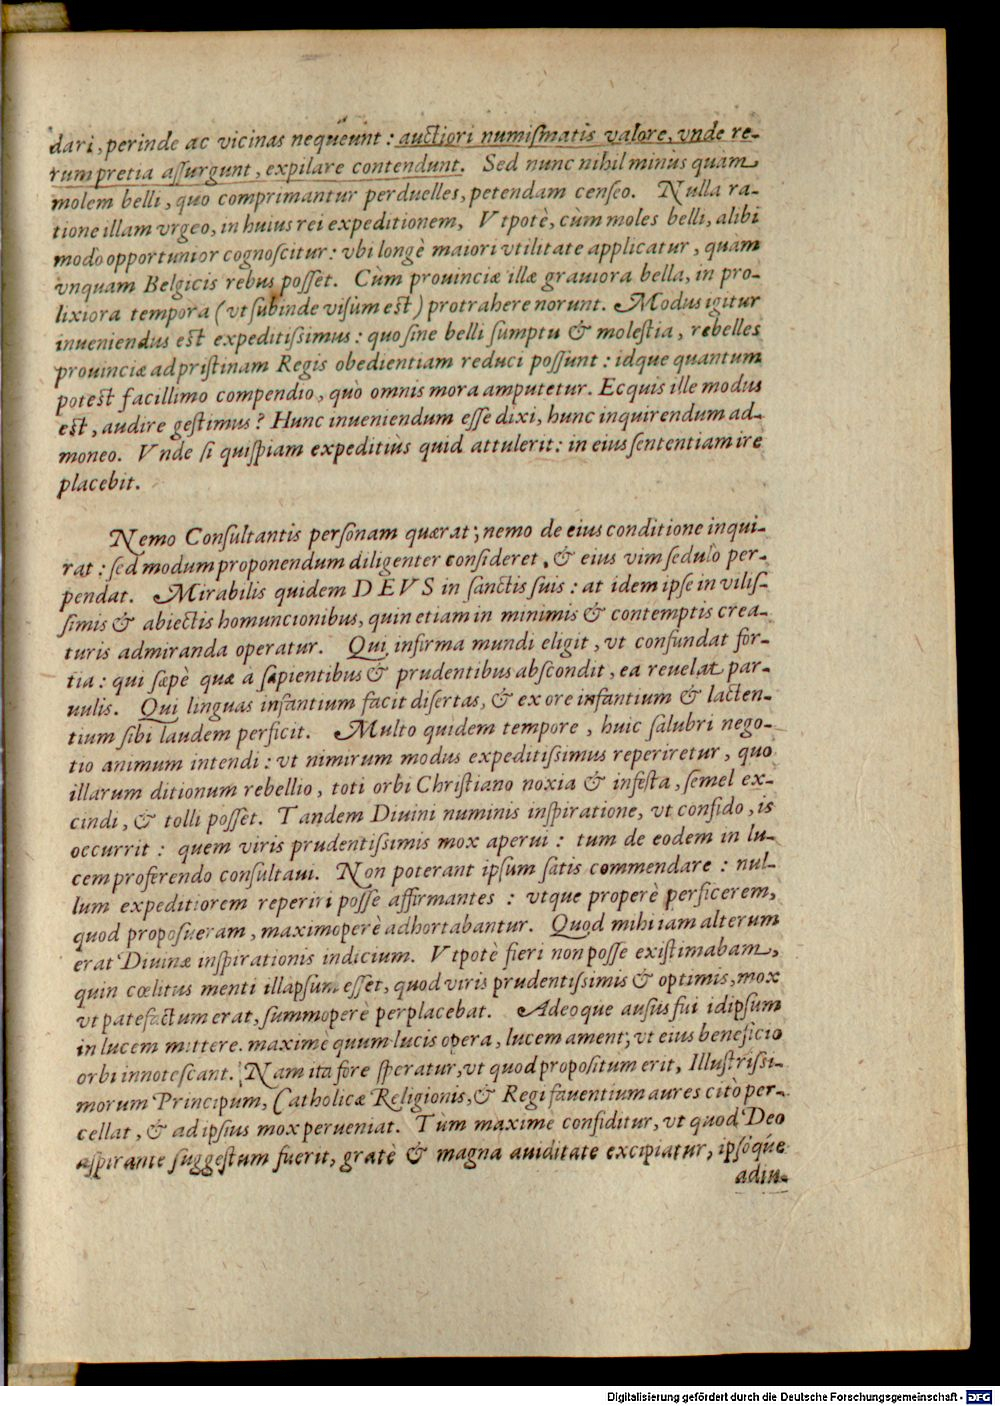 dari, perinde ac vicinas nequeunt : auctiori numiſmatis valore, vnde re-
rum pretia aſſurgunt, expilare contendunt. Sed nunc nihil minus quàm
molem belli, quo comprimantur perduelles, petendam cenſeo. Nulla ra-
tione illam vrgeo, in huius rei expeditionem, Vtpotè, cùm moles belli, alibi
modò opportunior cognoſcitur: vbi longè maiori vtilitate applicatur, quàm
vnquam Belgicis rebus poſſet. Cùm prouinciæ illæ grauiora bella, in pro-
lixiora tempora (vt ſubinde viſùm eſt) protrahere norunt. Modus igitur
inueniendus eſt expeditiſſimus : quo ſine belli ſumptu & moleſtia, rebelles
prouinciæ ad priſtinam Regis obedientiam reduci poſſunt : idque quantum
poteſt facillimo compendio, quò omnis mora amputetur. Ecquis ille modus
eſt, audire geſtimus? Hunc inueniendum eſſe dixi, hunc inquirendum ad-
moneo. Vnde ſi quiſpiam expeditiùs quid attulerit: in eius ſententiam ire
placebit.
Nemo Conſultantis perſonam quærat; nemo de eius conditione inqui-
rat : ſed modum proponendum diligenter conſideret, & eius vim ſedulò per-
pendat. Mirabilis quidem DEVS in ſanctis ſuis : at idem ipſe in viliſ-
ſimis & abiectis homuncionibus, quin etiam in minimis & contemptis crea-
turis admiranda operatur. Qui infirma mundi eligit, vt confundat for-
tia : qui ſæpè quæ à ſapientibus & prudentibus abſcondit, ea reuelat par-
uulis. Qui linguas infantium facit diſertas, & ex ore infantium & lacten-
tium ſibi laudem perficit. Multo quidem tempore, huic ſalubri nego-
tio animum intendi : vt nimirum modus expeditiſſimus reperiretur, quo
illarum ditionum rebellio, toti orbi Chriſtiano noxia & infeſta, ſemel ex-
cindi, & tolli poſſet. Tandem Diuini numinis inſpiratione, vt confido, is
occurrit : quem viris prudentiſſimis mox aperui : tum de eodem in lu-
cem proferendo conſultaui. Non poterant ipſum ſatis commendare : nul-
lum expeditiorem reperiri poſſe affirmantes : vtque properè perficerem,
quod propoſueram, maximoperè adhortabantur. Quod mihi iam alterum
erat Diuinæ inſpirationis indicium. Vtpotè fieri non poſſe exiſtimabam,
quin cœlitus menti illapſum eſſet, quod viris prudentiſſimis & optimis, mox
vt patefactum erat, ſummoperè perplacebat. Adeoque auſus fui idipſum
in lucem mittere. maxime quum lucis opera, lucem ament; vt eius beneficio
orbi innoteſcant. Nam ita fore ſperatur, vt quod propoſitum erit, Illuſtriſſi-
morum Principum, Catholicæ Religionis, & Regi fauentium aures citò per-
cellat, & ad ipſius mox perueniat. Tùm maximè confiditur, vt quod Deo
aſpirante ſuggeſtum fuerit, gratè & magna auiditate excipiatur, ipſóque
adiu-
Digitalisierung gefördert durch die Deutsche Forschungsgemeinschaft - DFG